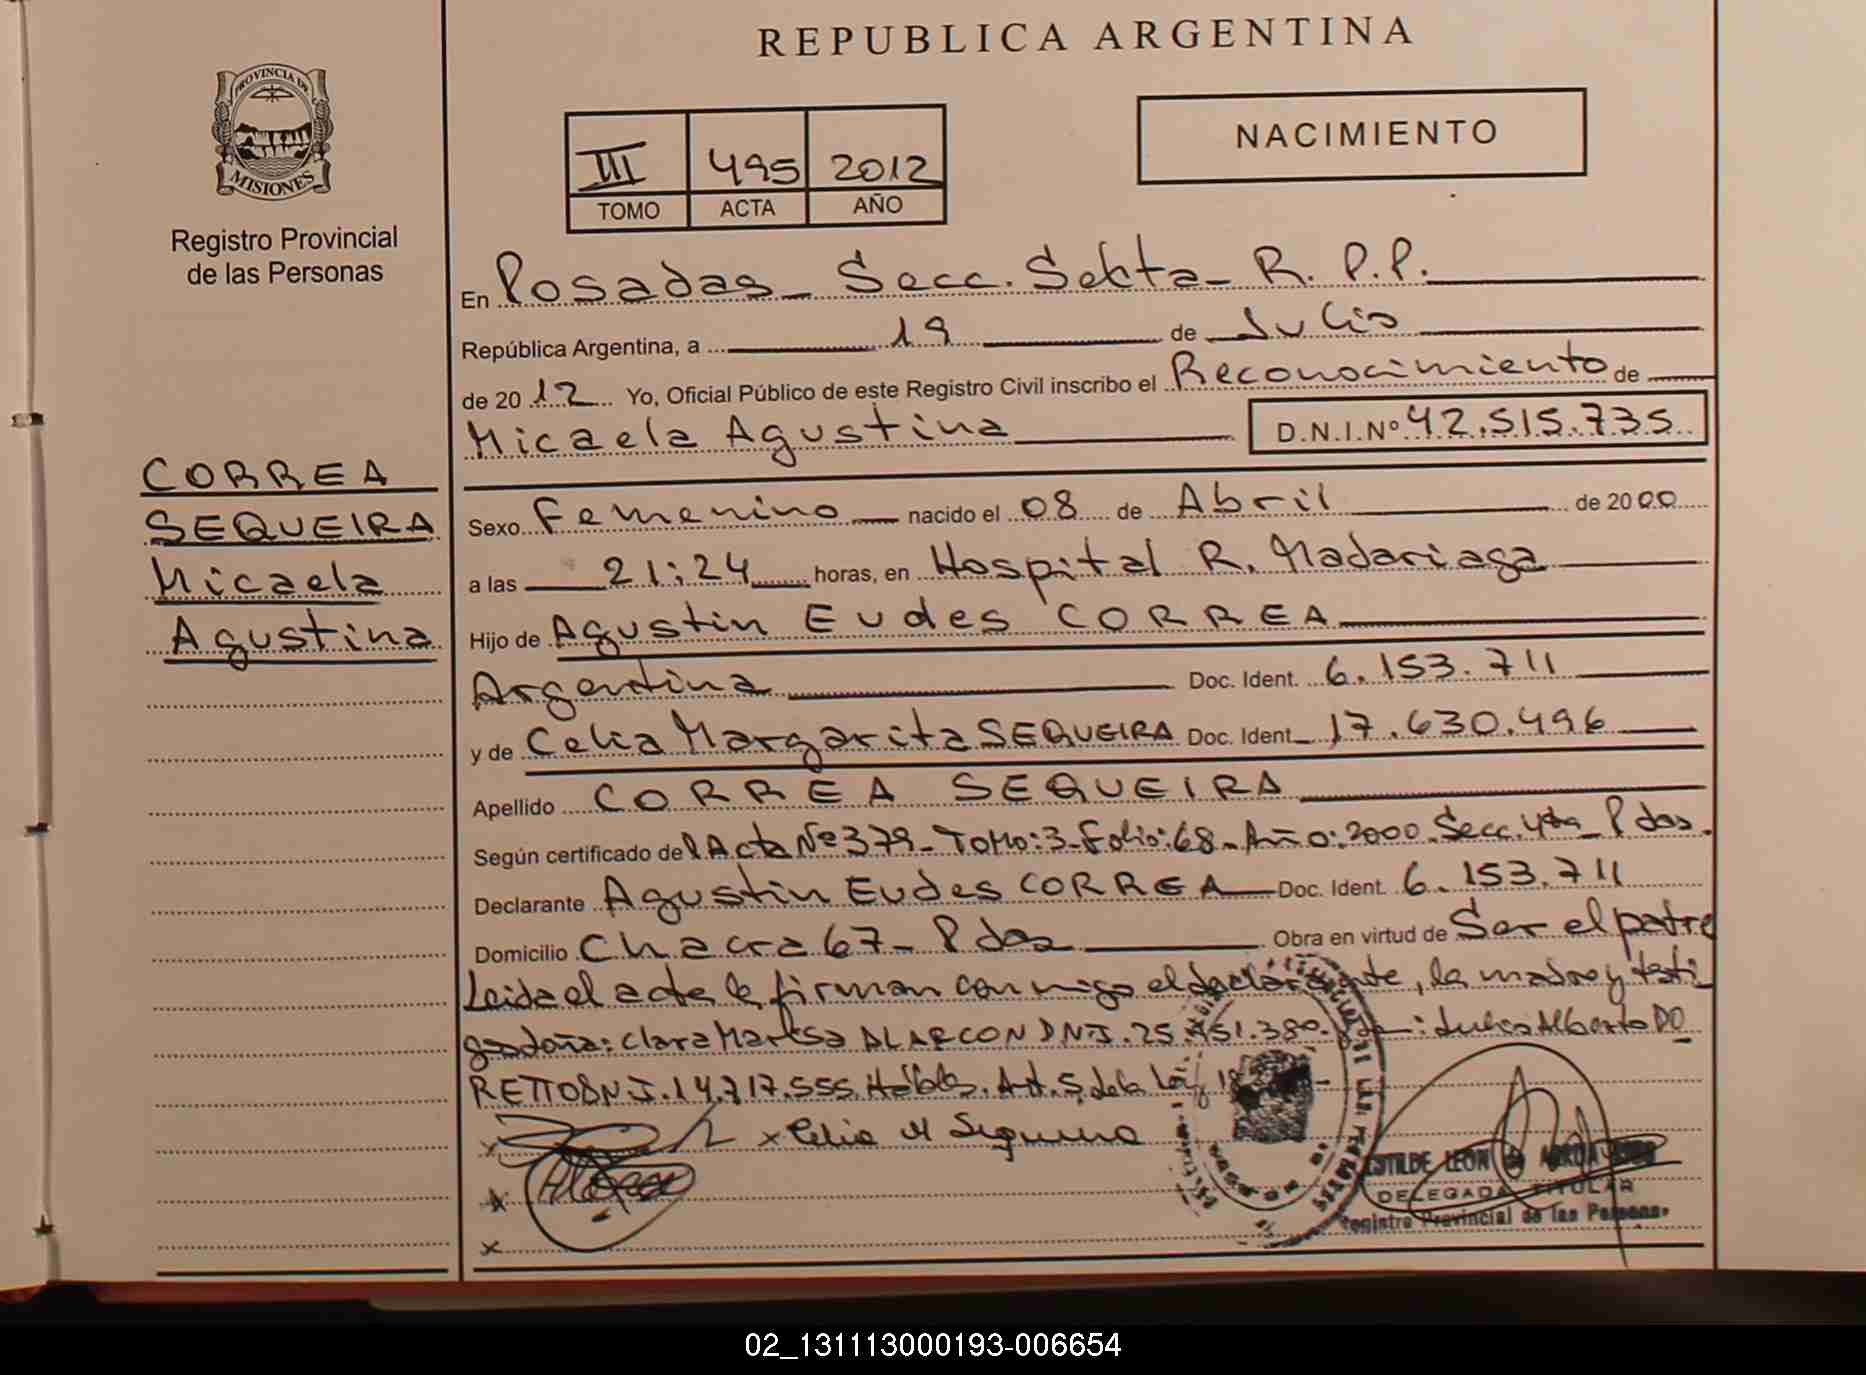 REPUBLICA ARGENTINA
PROVINCIA DE
MISIONES
Registro Provincial
de las Personas
III 495 2012
TOMO ACTA AÑO
NACIMIENTO
CORREA
SEQUEIRA
Micaela
Agustina
En Posadas - Secc. Sexta - R. P. P.
República Argentina, a 19 de Julio
de 2012 Yo, Oficial Público de este Registro Civil inscribo el Reconocimiento de
Micaela Agustina D.N.I.Nº 42.515.735
Sexo Femenino nacido el 08 de Abril de 2000
a las 21:24 horas, en Hospital R. Madariaga
Hijo de Agustin Eudes CORREA
Argentina Doc. Ident. 6.153.711
y de Celia Margarita SEQUEIRA Doc. Ident 17.630.496
Apellido CORREA SEQUEIRA
Según certificado del Acta Nº 379 - Tomo: 3 - Folio: 68 - Año: 2000. Secc. 4ta - Pdas.
Declarante Agustin Eudes CORREA Doc. Ident. 6.153.711
Domicilio Chacra 67 - Pdas Obra en virtud de Ser el padre
Leida el acta la firman conmigo el declarante, la madre y testi
gos doña: Clara Maresa ALARCON DNI. 25.451.380. Julio Alberto DO
RETTO DNI. 14.717.555. Hábiles. Art. 5 de la Ley 18
x x Celia M Sequeira
x
x
DELEGADA TITULAR
Registro Provincial de las Personas
02_131113000193-006654